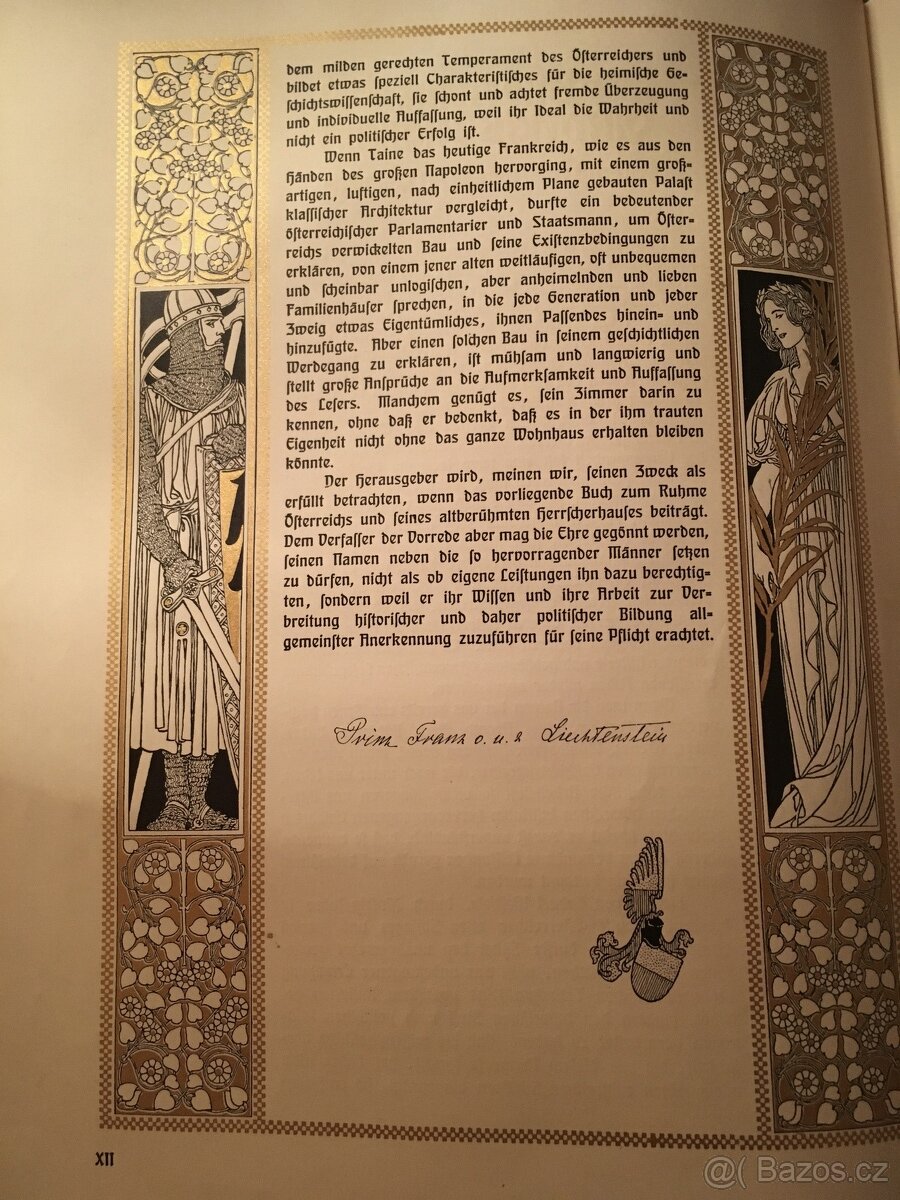 dem milden gerechten Temperament des Österreichers und
bildet etwas speziell Charakteristisches für die heimische Ge-
schichtswissenschaft, sie schont und achtet fremde Überzeugung
und individuelle Auffassung, weil ihr Ideal die Wahrheit und
nicht ein politischer Erfolg ist.
Wenn Taine das heutige Frankreich, wie es aus den
Händen des großen Napoleon hervorging, mit einem groß-
artigen, luftigen, nach einheitlichem Plane gebauten Palast
klassischer Architektur vergleicht, durfte ein bedeutender
österreichischer Parlamentarier und Staatsmann, um Öster-
reichs verwickelten Bau und seine Existenzbedingungen zu
erklären, von einem jener alten weitläufigen, oft unbequemen
und scheinbar unlogischen, aber anheimelnden und lieben
Familienhäuser sprechen, in die jede Generation und jeder
Zweig etwas Eigentümliches, ihnen Passendes hinein- und
hinzufügte. Aber einen solchen Bau in seinem geschichtlichen
Werdegang zu erklären, ist mühsam und langwierig und
stellt große Ansprüche an die Aufmerksamkeit und Auffassung
des Lesers. Manchem genügt es, sein Zimmer darin zu
kennen, ohne daß er bedenkt, daß es in der ihm trauten
Eigenheit nicht ohne das ganze Wohnhaus erhalten bleiben
könnte.
Der Herausgeber wird, meinen wir, seinen Zweck als
erfüllt betrachten, wenn das vorliegende Buch zum Ruhme
Österreichs und seines altberühmten Herrscherhauses beiträgt.
Dem Verfasser der Vorrede aber mag die Ehre gegönnt werden,
seinen Namen neben die so hervorragender Männer setzen
zu dürfen, nicht als ob eigene Leistungen ihn dazu berechtig-
ten, sondern weil er ihr Wissen und ihre Arbeit zur Ver-
breitung historischer und daher politischer Bildung all-
gemeinster Anerkennung zuzuführen für seine Pflicht erachtet.
Prinz Franz v. u. z. Liechtenstein
XII
@( Bazos.cz